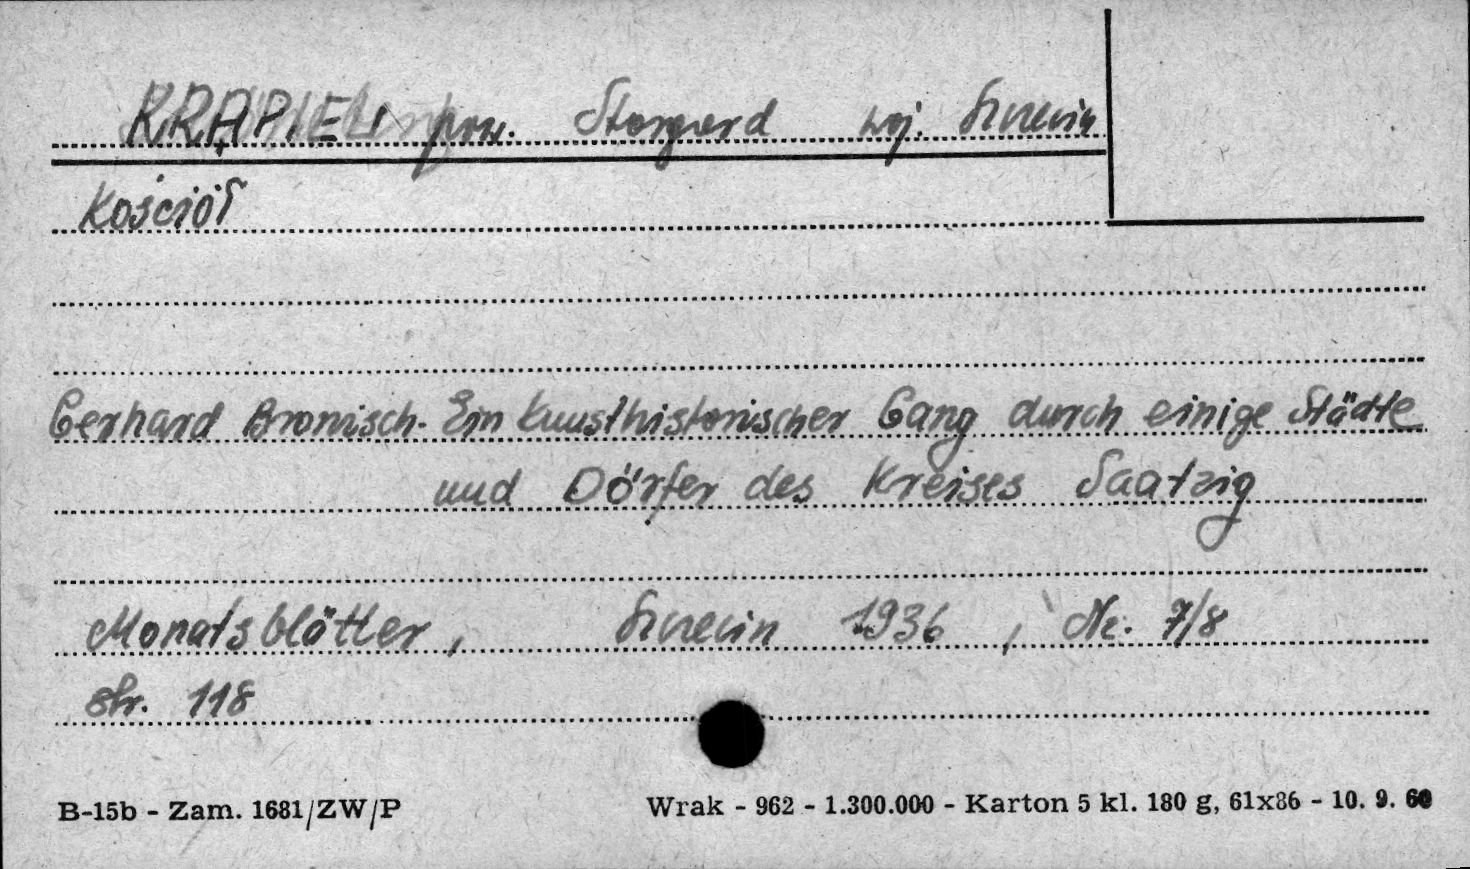 KRĄPIEL pow. Stargard woj. Szczecin
Kościół
Gerhard Bronisch. Ein kunsthistorischer Gang durch einige Städte
und Dörfer des Kreises Saatzig
Monatsblätter, Szczecin 1936, Nr. 7/8
str. 118
B-15b - Zam. 1681/ZW/P
Wrak - 962 - 1.300.000 - Karton 5 kl. 180 g, 61x86 - 10. 9. 60